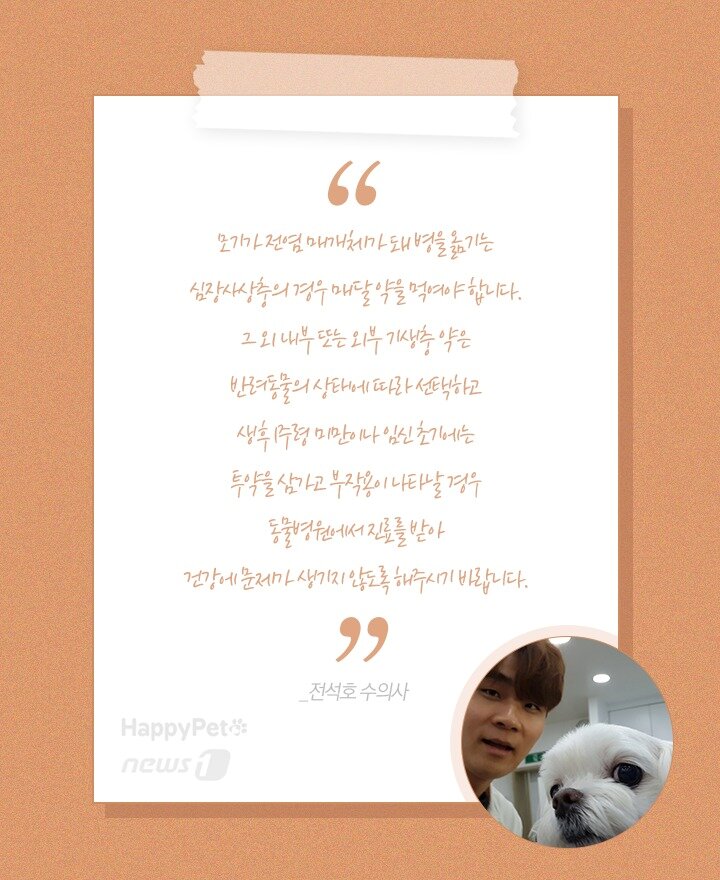 “
모기가 전염 매개체가 돼 병을 옮기는
심장사상충의 경우 매달 약을 먹여야 합니다.
그 외 내부 또는 외부 기생충 약은
반려동물의 상태에 따라 선택하고
생후 1주령 미만이나 임신 초기에는
투약을 삼가고 부작용이 나타날 경우
동물병원에서 진료를 받아
건강에 문제가 생기지 않도록 해주시기 바랍니다.
”
_전석호 수의사
HappyPet
news1